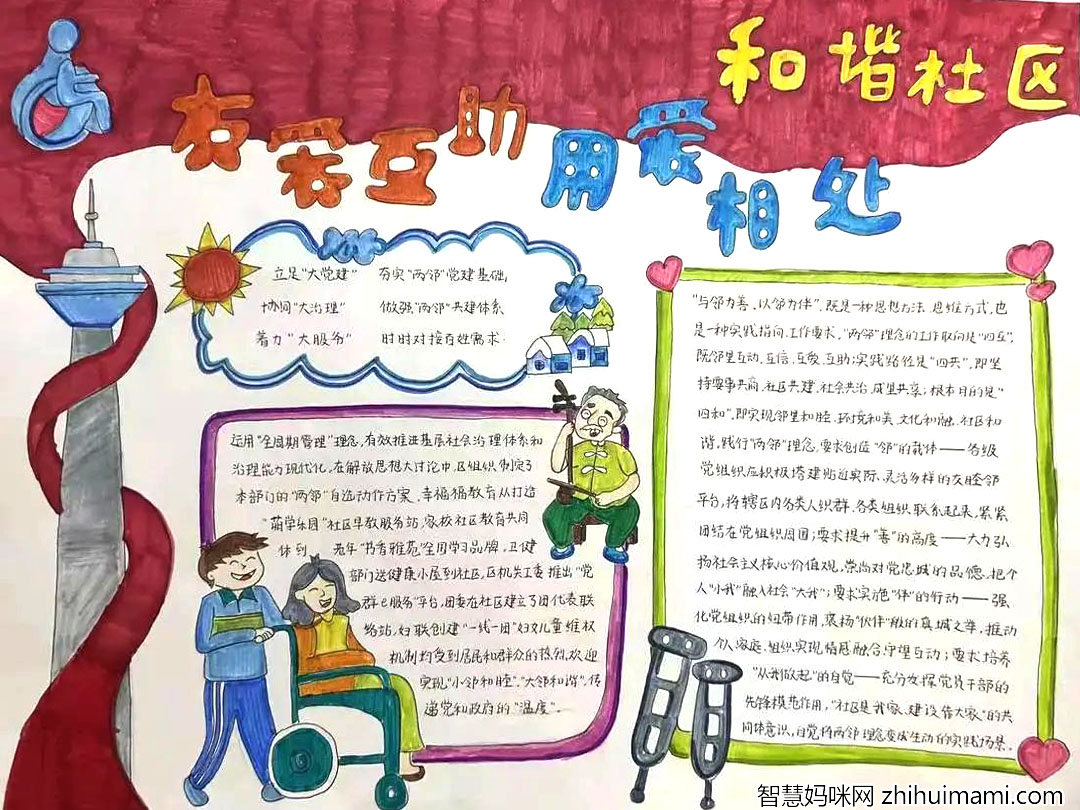 和谐社区
友爱互助 用爱相处
立足"大党建" 夯实"两邻"党建基础,
协同"大治理" 做强"两邻"共建体系
着力"大服务" 时时对接百姓需求.
运用"全周期管理"理念,有效推进基层社会治理体系和
治理能力现代化,在解放思想大讨论中,区组织制定了
本部门的"两邻"自选动作方案、幸福福教育从打造
"萌学乐园"社区早教服务站,家校社区教育共同
体到 老年"书香雅苑"全国学习品牌,卫健
部门送健康小屋到社区,区机关工委推出"党
群e服务"平台,团委在社区建立了团代表联
络站,妇联创建"一线一团"妇女儿童维权
机制均受到居民和群众的热烈欢迎
实现"小邻和睦"、"大邻和谐",传
递党和政府的"温度"。
"与邻为善、以邻为伴",既是一种思想方法、思维方式,也
是一种实践指向、工作要求,"两邻"理念的工作取向是"四互",
既邻里互动、互信、互爱、互助;实践路径是"四共",即坚
持要事共商、社区共建、社会共治、成里共享;根本目的是"
四和",即实现邻里和睦、环境和美、文化和融、社区和
谐,践行"两邻"理念,要求创造"邻"的载体——各级
党组织应积极搭建贴近实际、灵活多样的友睦邻
平台,将辖区内各类人织群、各类组织联系起来,紧紧
团结在党组织周围;要求提升"善"的高度——大力弘
扬社会主义核心价值观,崇尚对党忠城的品德,把个
人"小我"融入社会"大我";要求实施"伴"的行动——强
化党组织的纽带作用,褒扬"伙伴"般的真城之举,推动
个人、家庭、组织实现情感融合、守望互动;要求培养
"从我做起"的自觉——充分发探党员干部的
先锋模范作用,"社区是我家、建设靠大家"的共
同体意识,自觉将两邻理念变成生动的实践场景.
智慧妈咪网 zhihuimami.com